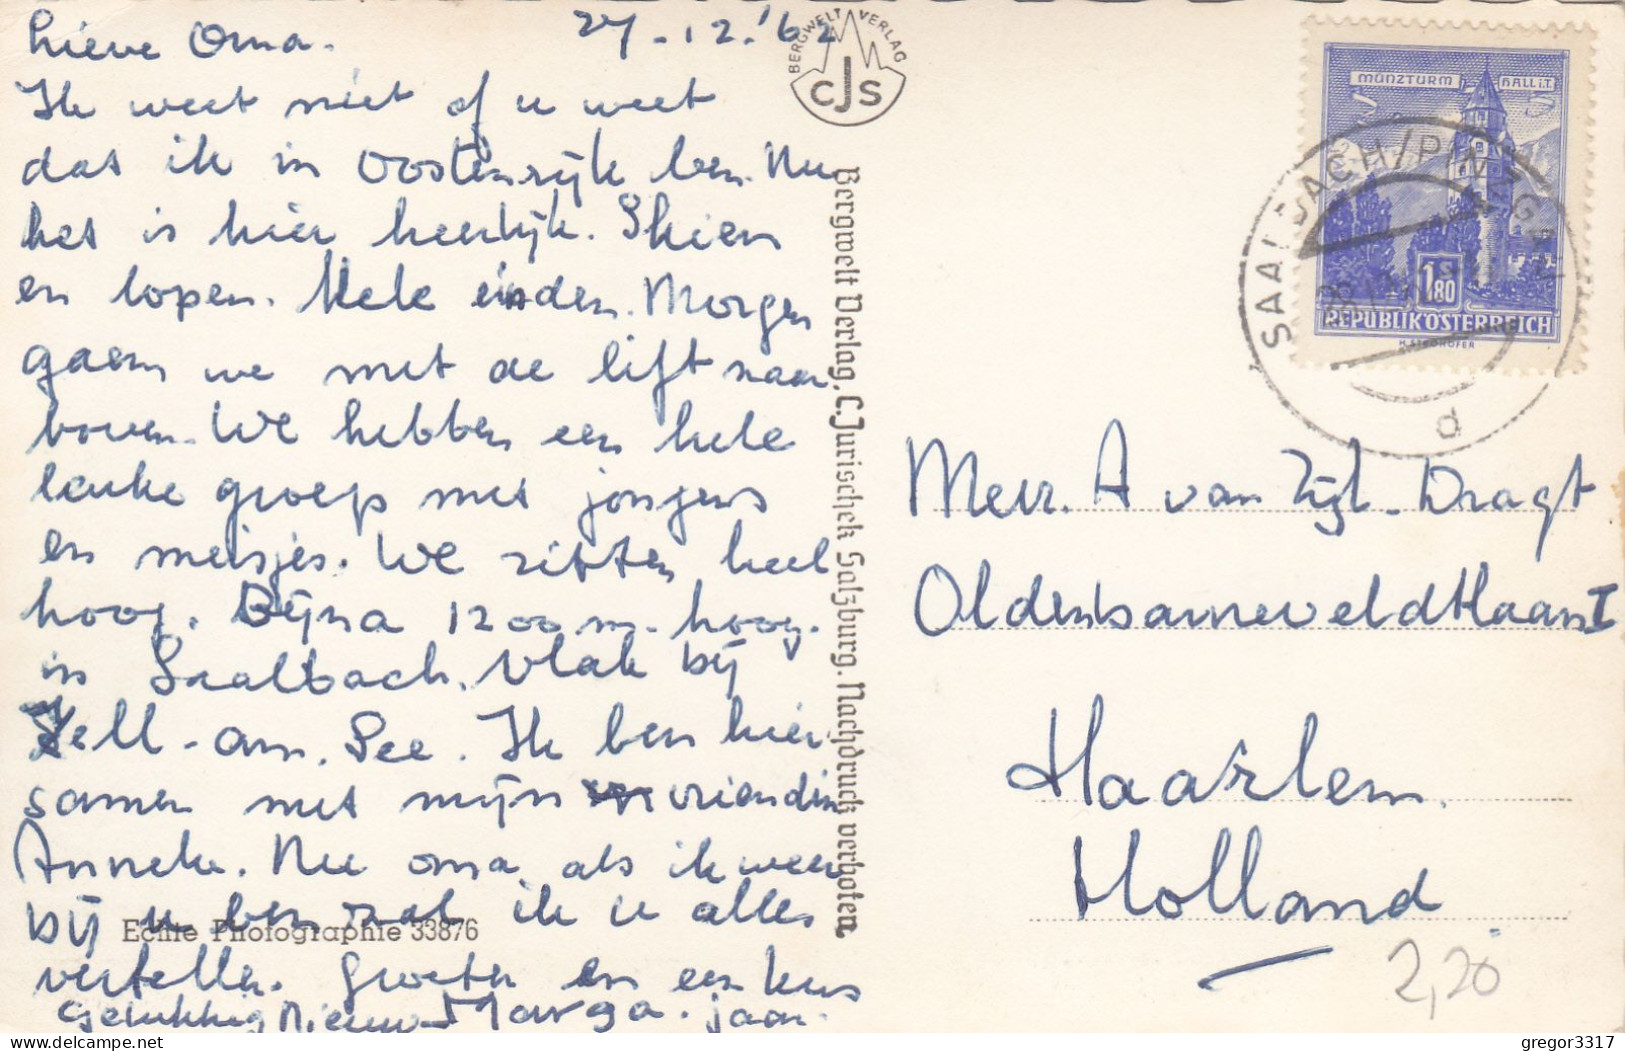 Lieve Oma. 27-12.'62
Ik weet niet of u weet
dat ik in Oostenrijk ben. Nu
het is hier heerlijk. Skien
en lopen. Hele einden. Morgen
gaan we met de lift naar
boven. We hebben een hele
leuke groep met jongens
en meisjes. We zitten heel
hoog. Bijna 1200 m. hoog.
in Saalbach. Vlak bij
Zell-am-See. Ik ben hier
samen met mijn vriendin
Anneke. Nu oma, als ik weer
bij u ben zal ik u alles
vertellen. Groeten en een kus
Marga.
Gelukkig Nieuw jaar.
Echte Photographie 33876
BERGWELT VERLAG
CJS
Bergwelt Verlag, C. Jurischek Salzburg. Nachdruck verboten.
MÜNZTURM HALL i.T.
S 1.80
REPUBLIK ÖSTERREICH
SAALBACH/PINZGAU
d
Mevr. A van Zijl-Dragt
Oldenbarneveldtlaan 1
Haarlem.
Holland
2,20
delcampe.net
gregor3317